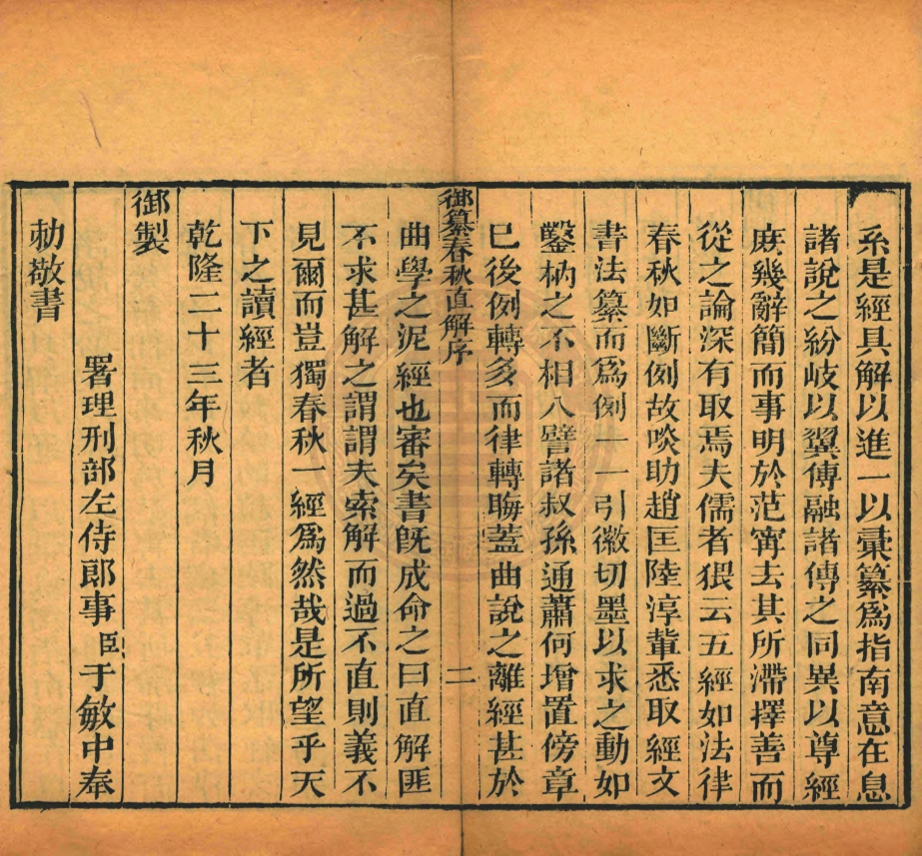 系是經具解以進一以彙纂爲指南意在息
諸說之紛岐以翼傳融諸傳之同異以尊經
庶幾辭簡而事明於范甯去其所滯擇善而
從之論深有取焉夫儒者猥云五經如法律
春秋如斷例故啖助趙匡陸淳輩悉取經文
書法纂而爲例一一引徽切墨以求之動如
鑿枘之不相入譬諸叔孫通蕭何增置傍章
已後例轉多而律轉晦蓋曲說之離經甚於
御纂春秋直解序
二
曲學之泥經也審矣書旣成命之曰直解匪
不求甚解之謂謂夫索解而過不直則義不
見爾而豈獨春秋一經爲然哉是所望乎天
下之讀經者
乾隆二十三年秋月
御製
署理刑部左侍郎事臣于敏中奉
勅敬書